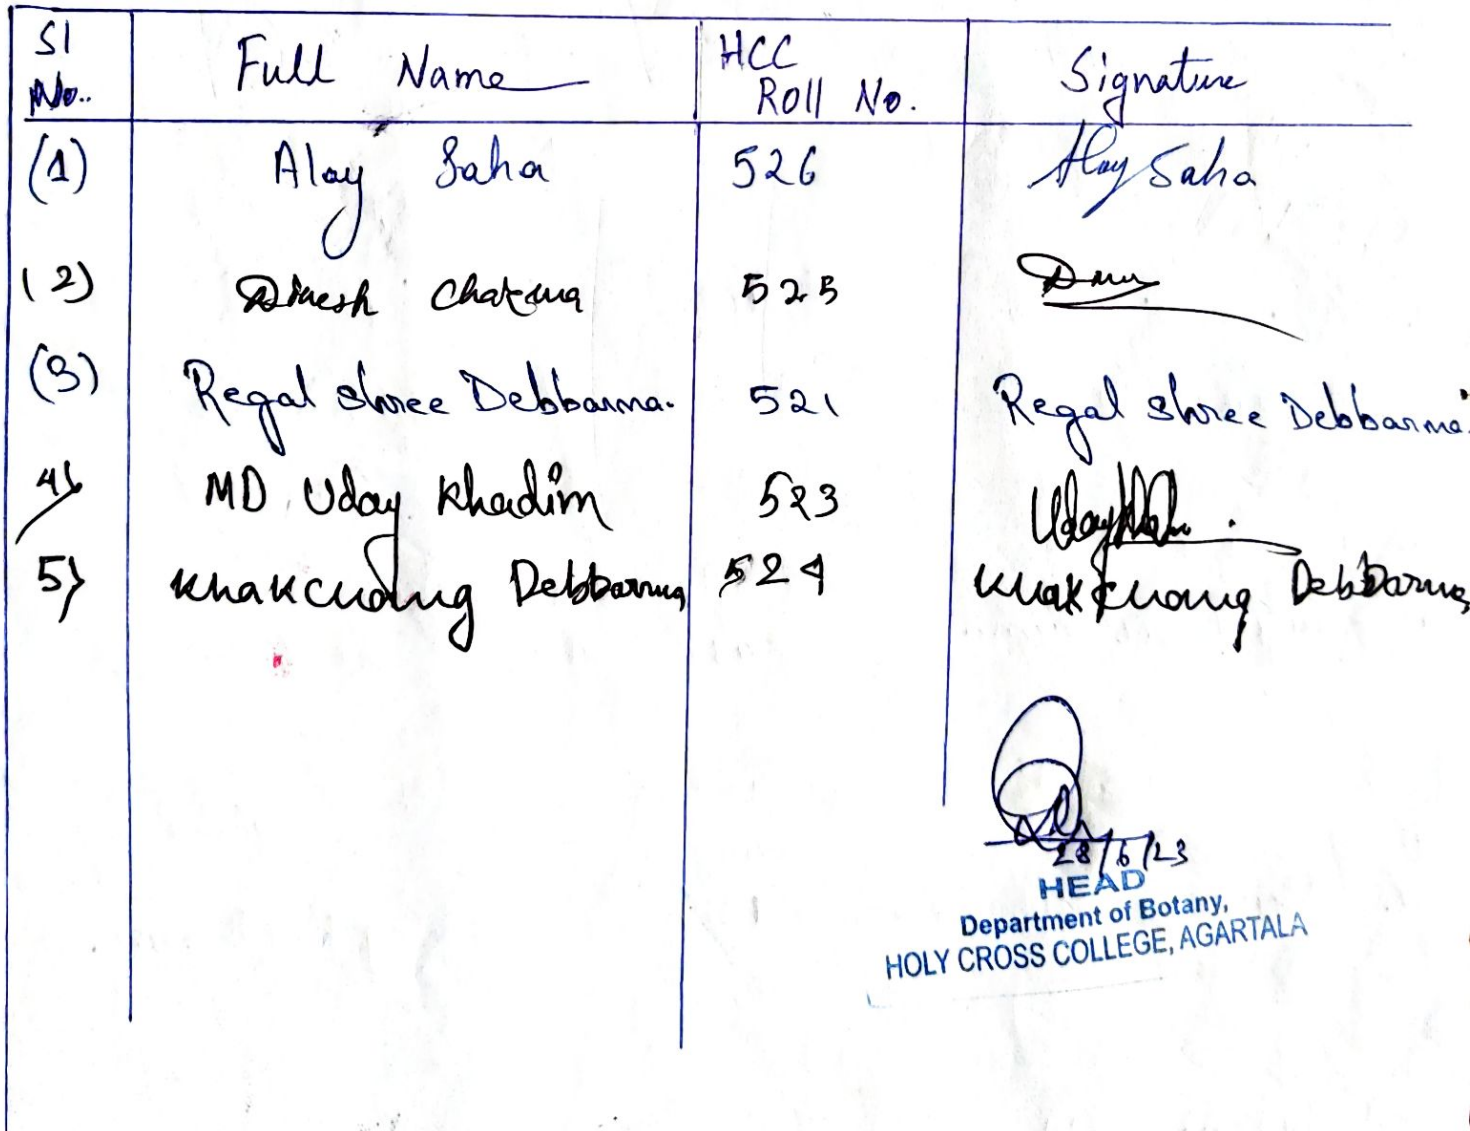 Sl No.. Full Name HCC Roll No. Signature
(1) Aloy Saha 526 Aloy Saha
(2) Dinesh Chakma 525
(3) Regal shree Debbarma. 521 Regal shree Debbarma.
4) MD Uday Khadim 523 Uday
5) Khakchang Debbarma 524 Debbarma
28/6/23
HEAD
Department of Botany,
HOLY CROSS COLLEGE, AGARTALA